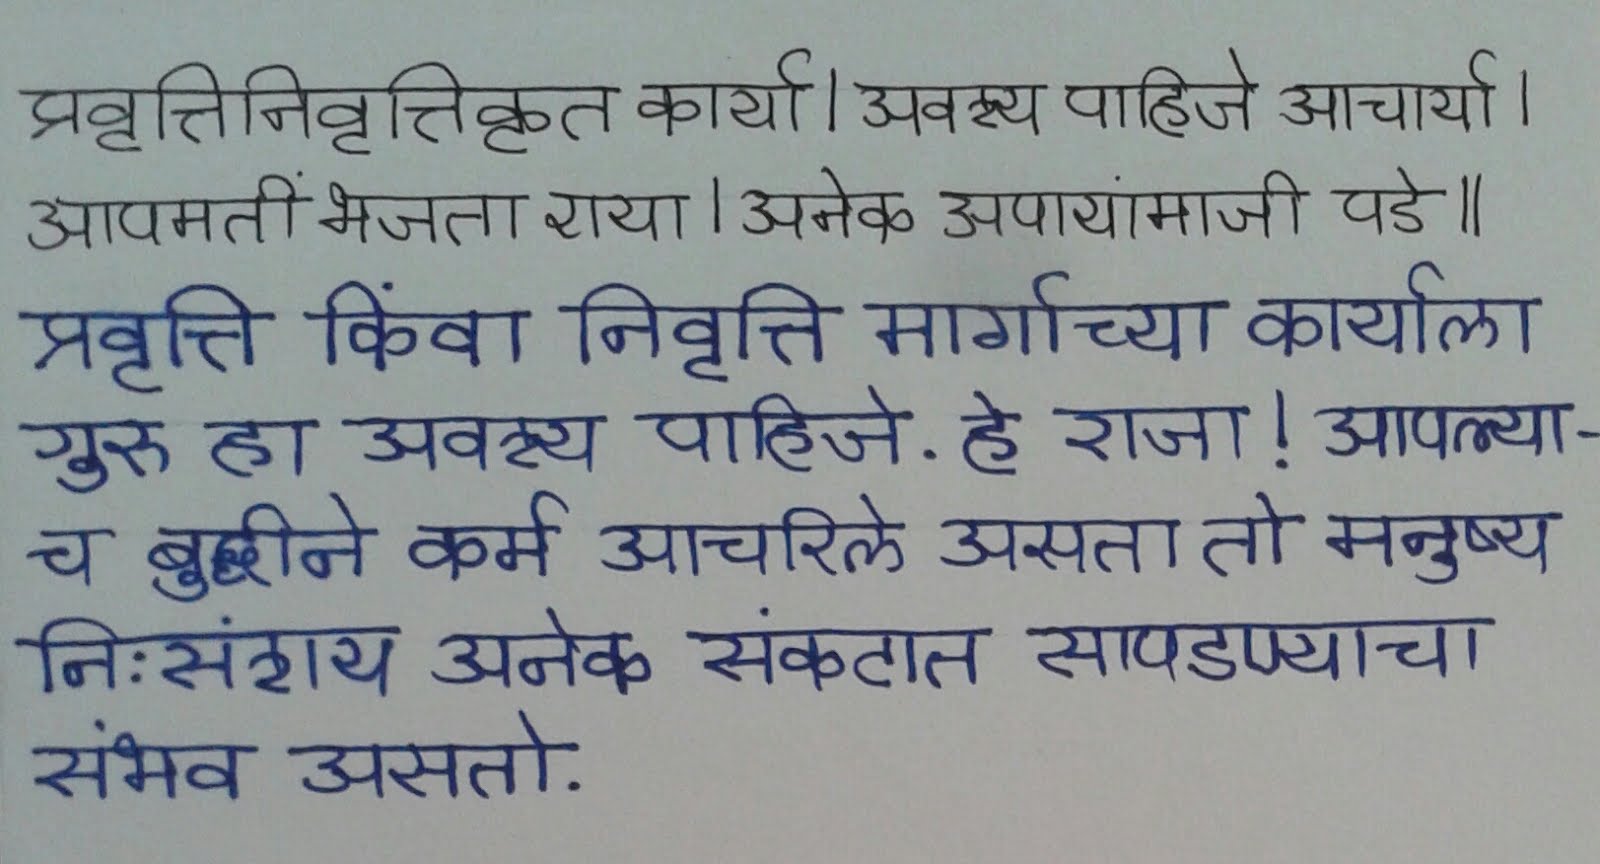 प्रवृत्तिनिवृत्तिकृत कार्या। अवश्य पाहिजे आचार्या।
आपमतीं भजता राया। अनेक अपायांमाजी पडे॥
प्रवृत्ति किंवा निवृत्ति मार्गाच्या कार्याला
गुरु हा अवश्य पाहिजे. हे राजा! आपल्या-
च बुद्धीने कर्म आचरिले असता तो मनुष्य
निःसंशय अनेक संकटात सापडण्याचा
संभव असतो.